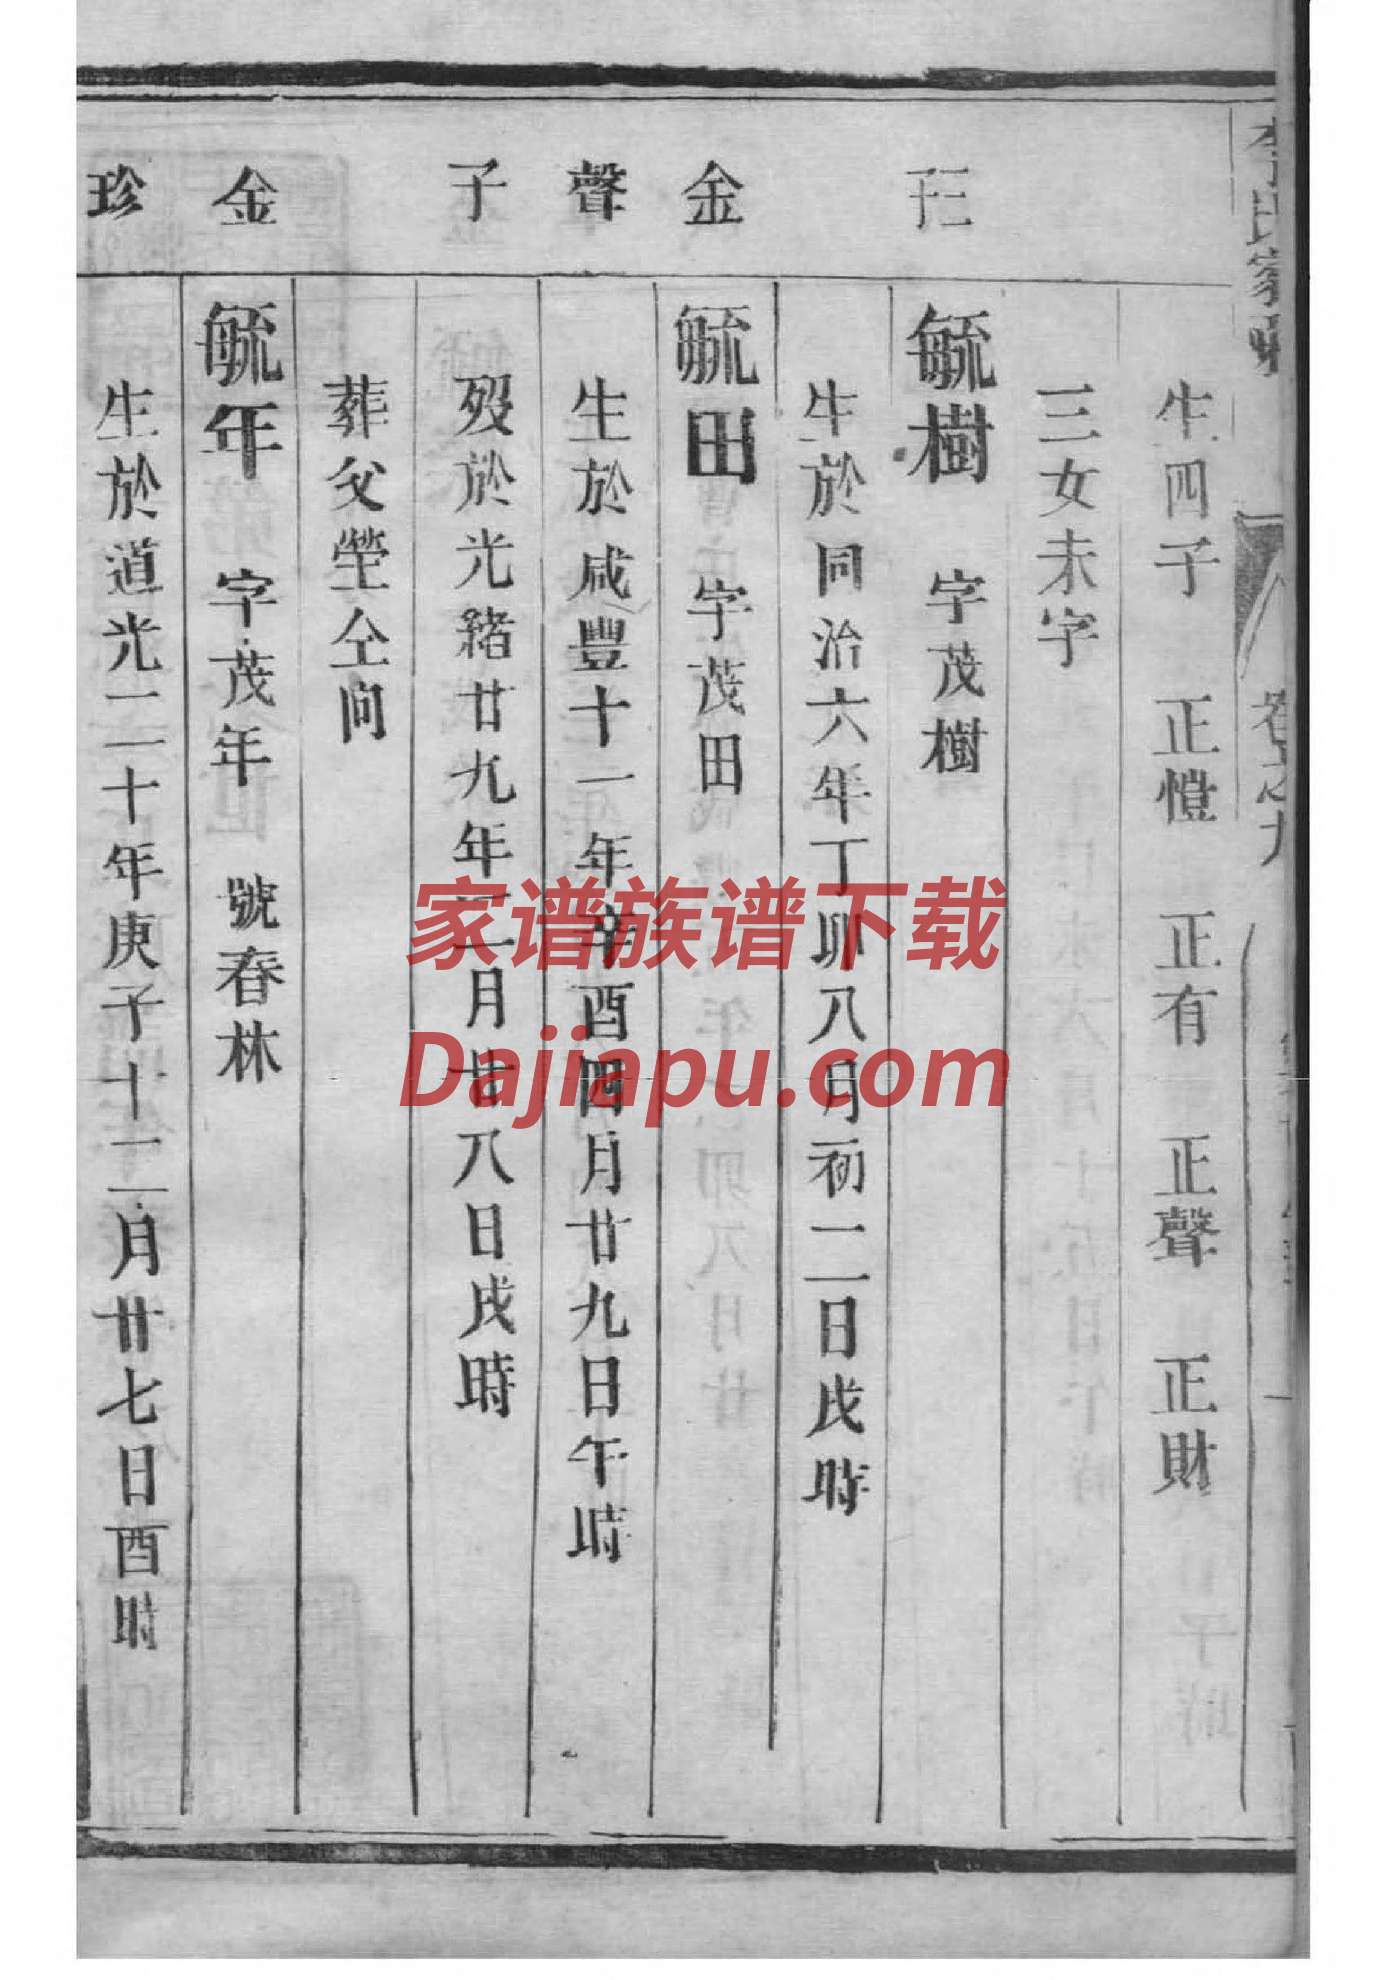 李氏家乘
卷之九
生四子　正愷　正有　正聲　正財
三女未字
毓樹　字茂樹
生於同治六年丁卯八月初二日戌時
金
毓田　字茂田
聲
生於咸豐十一年辛酉四月廿九日午時
子
歿於光緒廿九年二月廿八日戌時
葬父塋仝向
金
毓年　字茂年　號春林
珍
生於道光二十年庚子十二月廿七日酉時
家谱族谱下载
Dajiapu.com